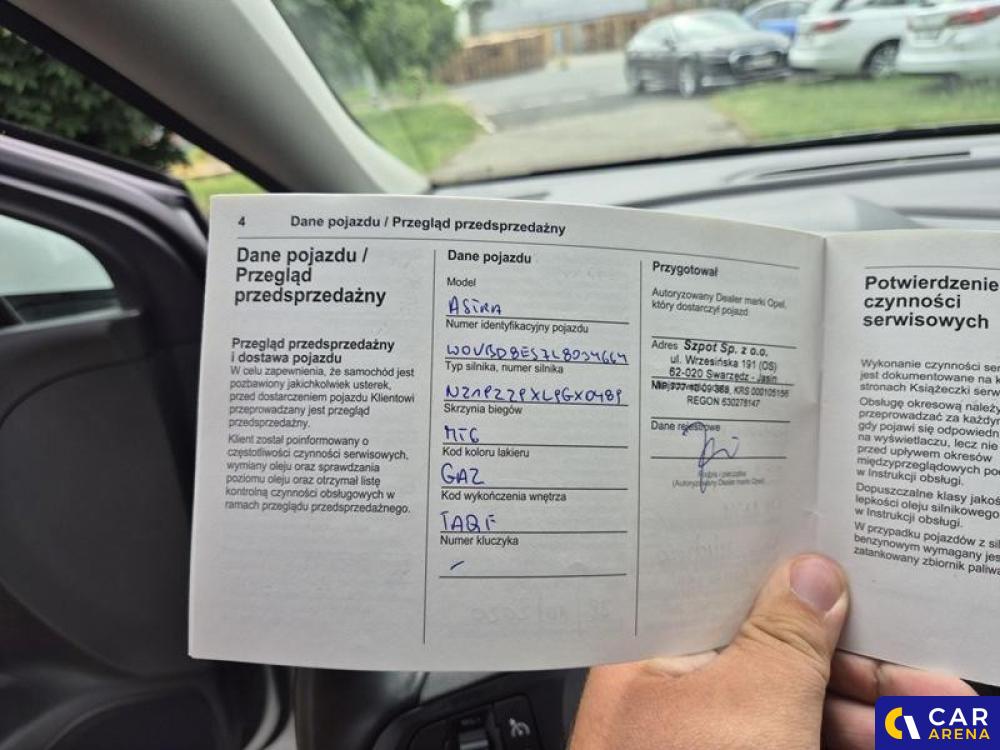 4 Dane pojazdu / Przegląd przedsprzedażny
Dane pojazdu /
Przegląd
przedsprzedażny
Przegląd przedsprzedażny
i dostawa pojazdu
W celu zapewnienia, że samochód jest
pozbawiony jakichkolwiek usterek,
przed dostarczeniem pojazdu Klientowi
przeprowadzany jest przegląd
przedsprzedażny.
Klient został poinformowany o
częstotliwości czynności serwisowych,
wymiany oleju oraz sprawdzania
poziomu oleju oraz otrzymał listę
kontrolną czynności obsługowych w
ramach przeglądu przedsprzedażnego.
Dane pojazdu
Model
ASTRA
Numer identyfikacyjny pojazdu
W0VBD8ES7L8034664
Typ silnika, numer silnika
Skrzynia biegów
MT6
Kod koloru lakieru
GAZ
Kod wykończenia wnętrza
TAQF
Numer kluczyka
-
Przygotował
Autoryzowany Dealer marki Opel,
który dostarczył pojazd
Adres Szpot Sp. z o.o.
ul. Wrzesińska 191 (OS)
62-020 Swarzędz - Jasin
REGON 630278147
Dane rejestrowe
(Autoryzowany Dealer marki Opel)
Potwierdzenie
czynności
serwisowych
Wykonanie czynności
jest dokumentowane na
stronach Książeczki
Obsługę okresową należy
przeprowadzać za każdym
gdy pojawi się
na wyświetlaczu, lecz nie
przed upływem okresów
międzyprzeglądowych
w Instrukcji obsługi.
Dopuszczalne klasy
lepkości oleju silnikowego
w Instrukcji obsługi.
W przypadku pojazdów z
benzynowym wymagany
zatankowany zbiornik paliwa
CAR
ARENA